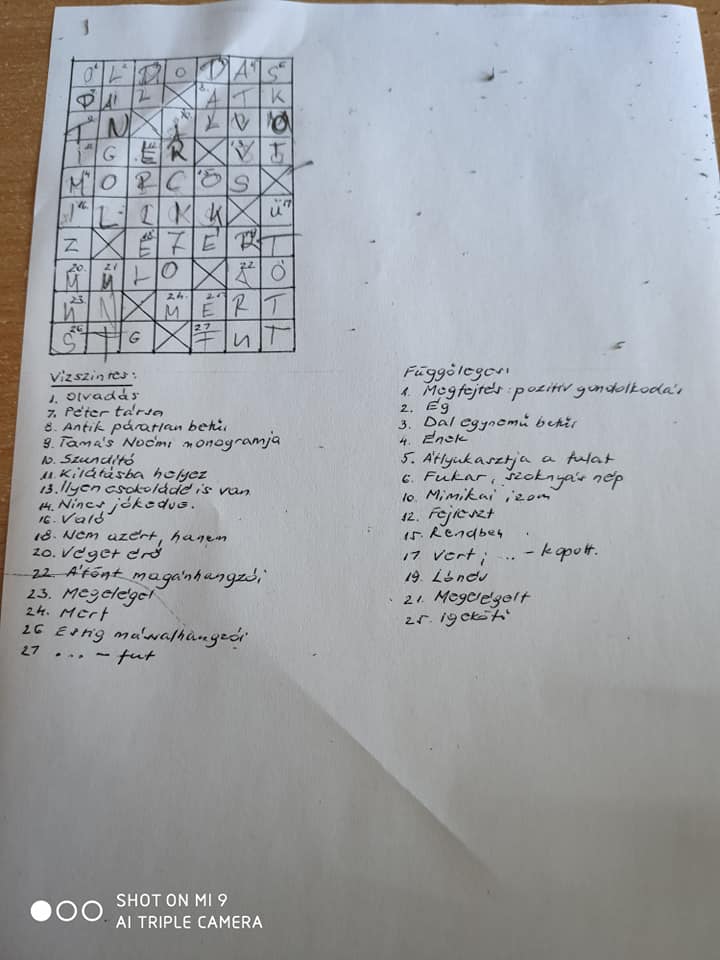 O¹ L² D³ O⁴ D⁵ A S⁶
P⁷ Á L X ⁸A T K
T⁹ N X ¹⁰Á L V Ó
Í¹¹ G É R X ¹³V T
M¹⁴ O R C O¹⁵ S X
I¹⁶ L L I K K X ü¹⁷
Z X É¹⁸ Z E R T
M²⁰ ²¹ L O X A²² Ó
U²³ N X M²⁴ E²⁵ R T
S²⁶ T G X ²⁷F U T
Vizszintes:
1. Olvadás
7. Péter társa
8. Antik páratlan betűi
9. Tamás Noémi monogramja
10. Szundító
11. Kilátásba helyez
13. Ilyen csokoládé is van
14. Nincs jókedve.
16. Való
18. Nem azért, hanem
20. Véget érő
22. Áfónt magánhangzói
23. Megelégel
24. Mert
26 Estig mássalhangzói
27 ... - fut
Függőleges:
1. Megfejtés: pozitív gondolkodás
2. Ég
3. Dal egynemű betűi
4. Ének
5. Átlyukasztja a falat
6. Fukar, szoknyás nép
10. Mimikai izom
12. Fejleszt
15. Rendben
17 Vert; ... - kopott.
19. Lóméu
21. Megelégelt
25. igekötő
SHOT ON MI 9
AI TRIPLE CAMERA